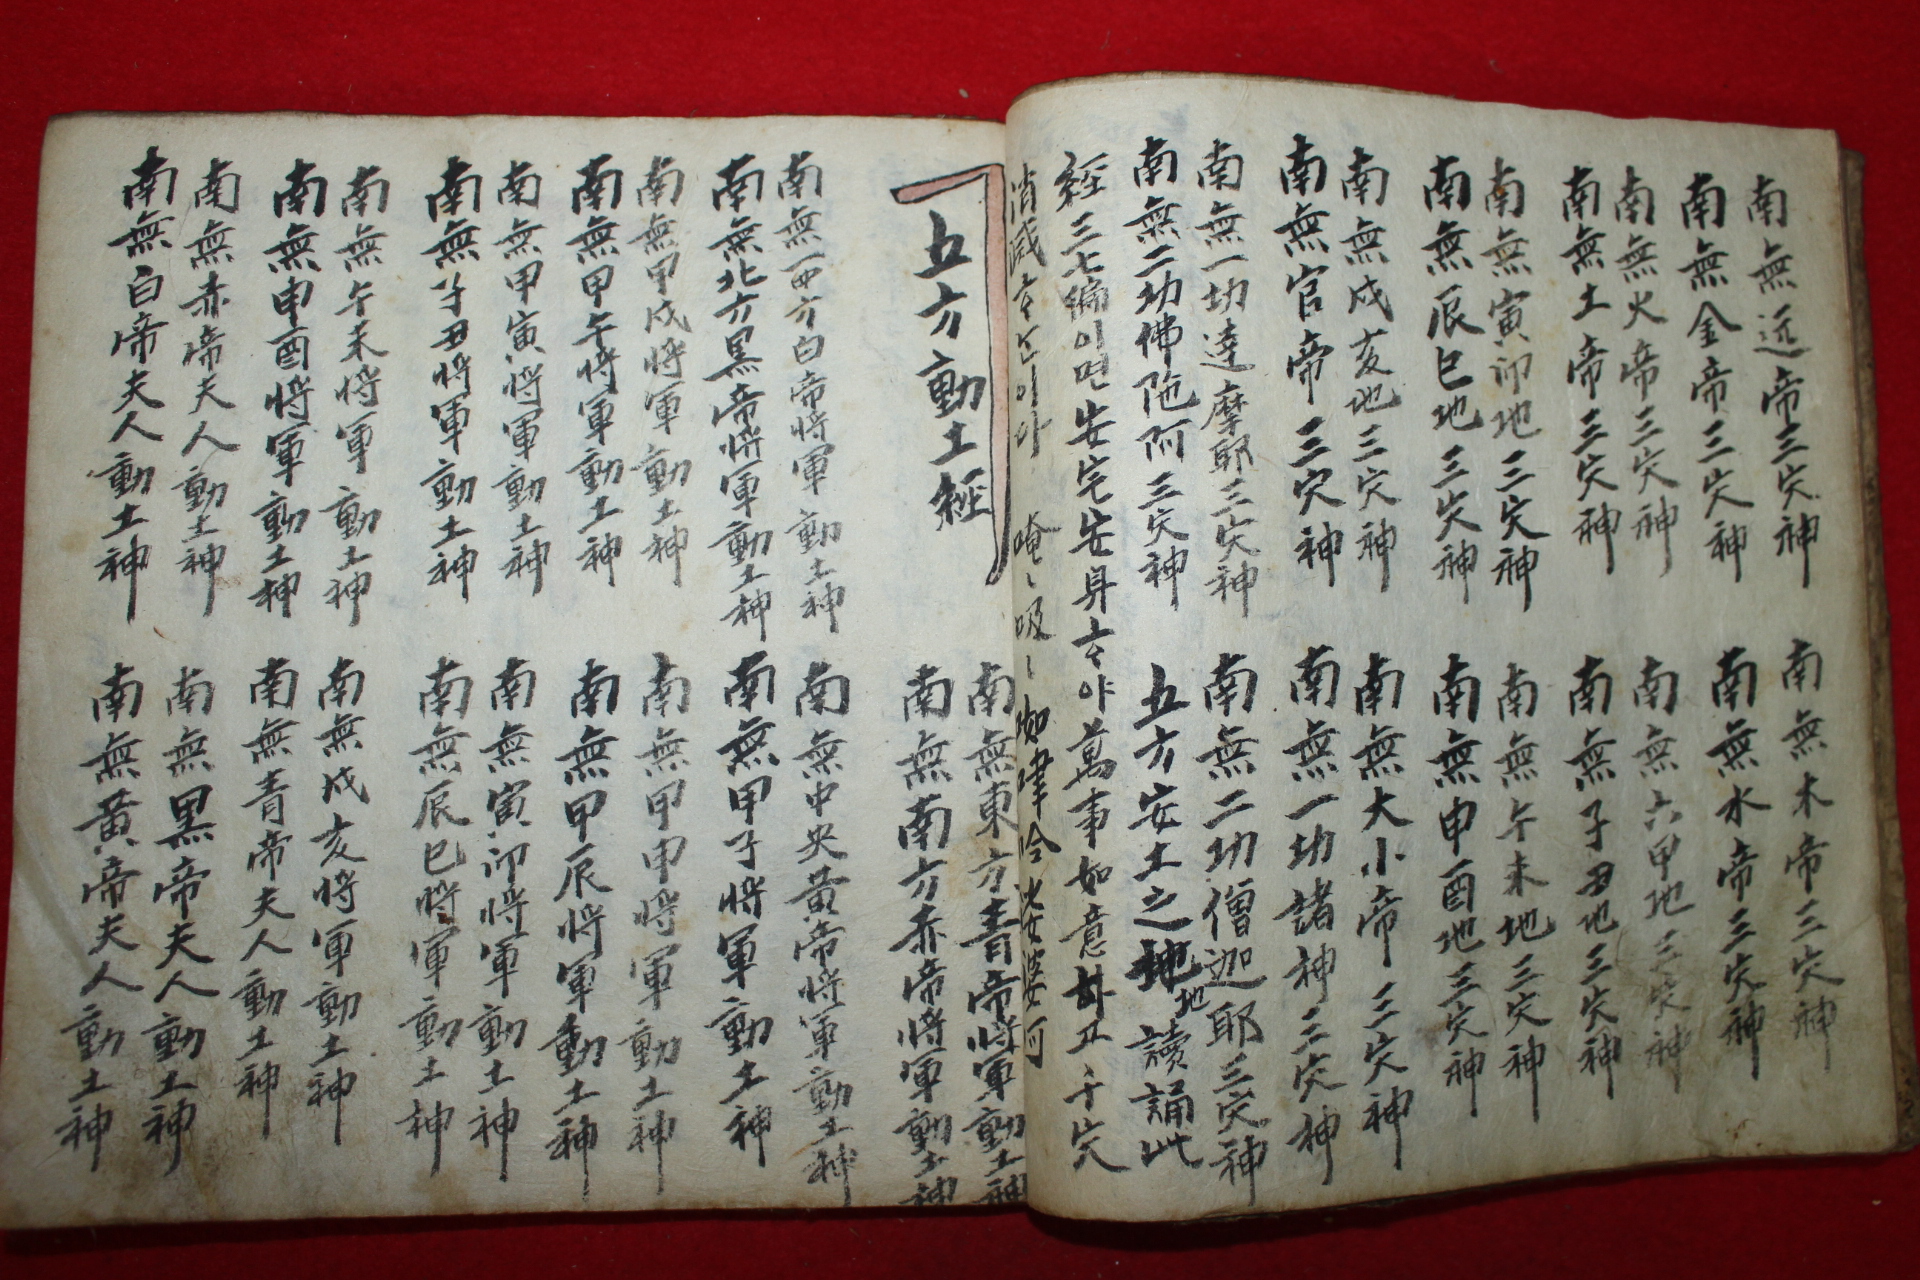 南無远帝三灾神 南無木帝三灾神
南無金帝三灾神 南無水帝三灾神
南無火帝三灾神 南無六甲地三灾神
南無土帝三灾神 南無子丑地三灾神
南無寅卯地三灾神 南無午未地三灾神
南無辰巳地三灾神 南無申酉地三灾神
南無戌亥地三灾神 南無大小帝三灾神
南無官帝三灾神 南無一切諸神三灾神
南無一切達摩耶三灾神 南無二切僧迦耶三灾神
南無二切佛陁阿三灾神 五方安土之地 讀誦此
經三七編이면安宅安身하야萬事如意하고千灾
消滅 이라 唵〻吸〻 婆阿
五方動土經
南無東方青帝將軍動土神
南無南方赤帝將軍動土神
南無西方白帝將軍動土神 南無中央黃帝將軍動土神
南無北方黑帝將軍動土神 南無甲子將軍動土神
南無甲戌將軍動土神 南無甲申將軍動土神
南無甲午將軍動土神 南無甲辰將軍動土神
南無甲寅將軍動土神 南無寅卯將軍動土神
南無子丑將軍動土神 南無辰巳將軍動土神
南無午未將軍動土神 南無戌亥將軍動土神
南無申酉將軍動土神 南無青帝夫人動土神
南無赤帝夫人動土神 南無黑帝夫人動土神
南無白帝夫人動土神 南無黃帝夫人動土神